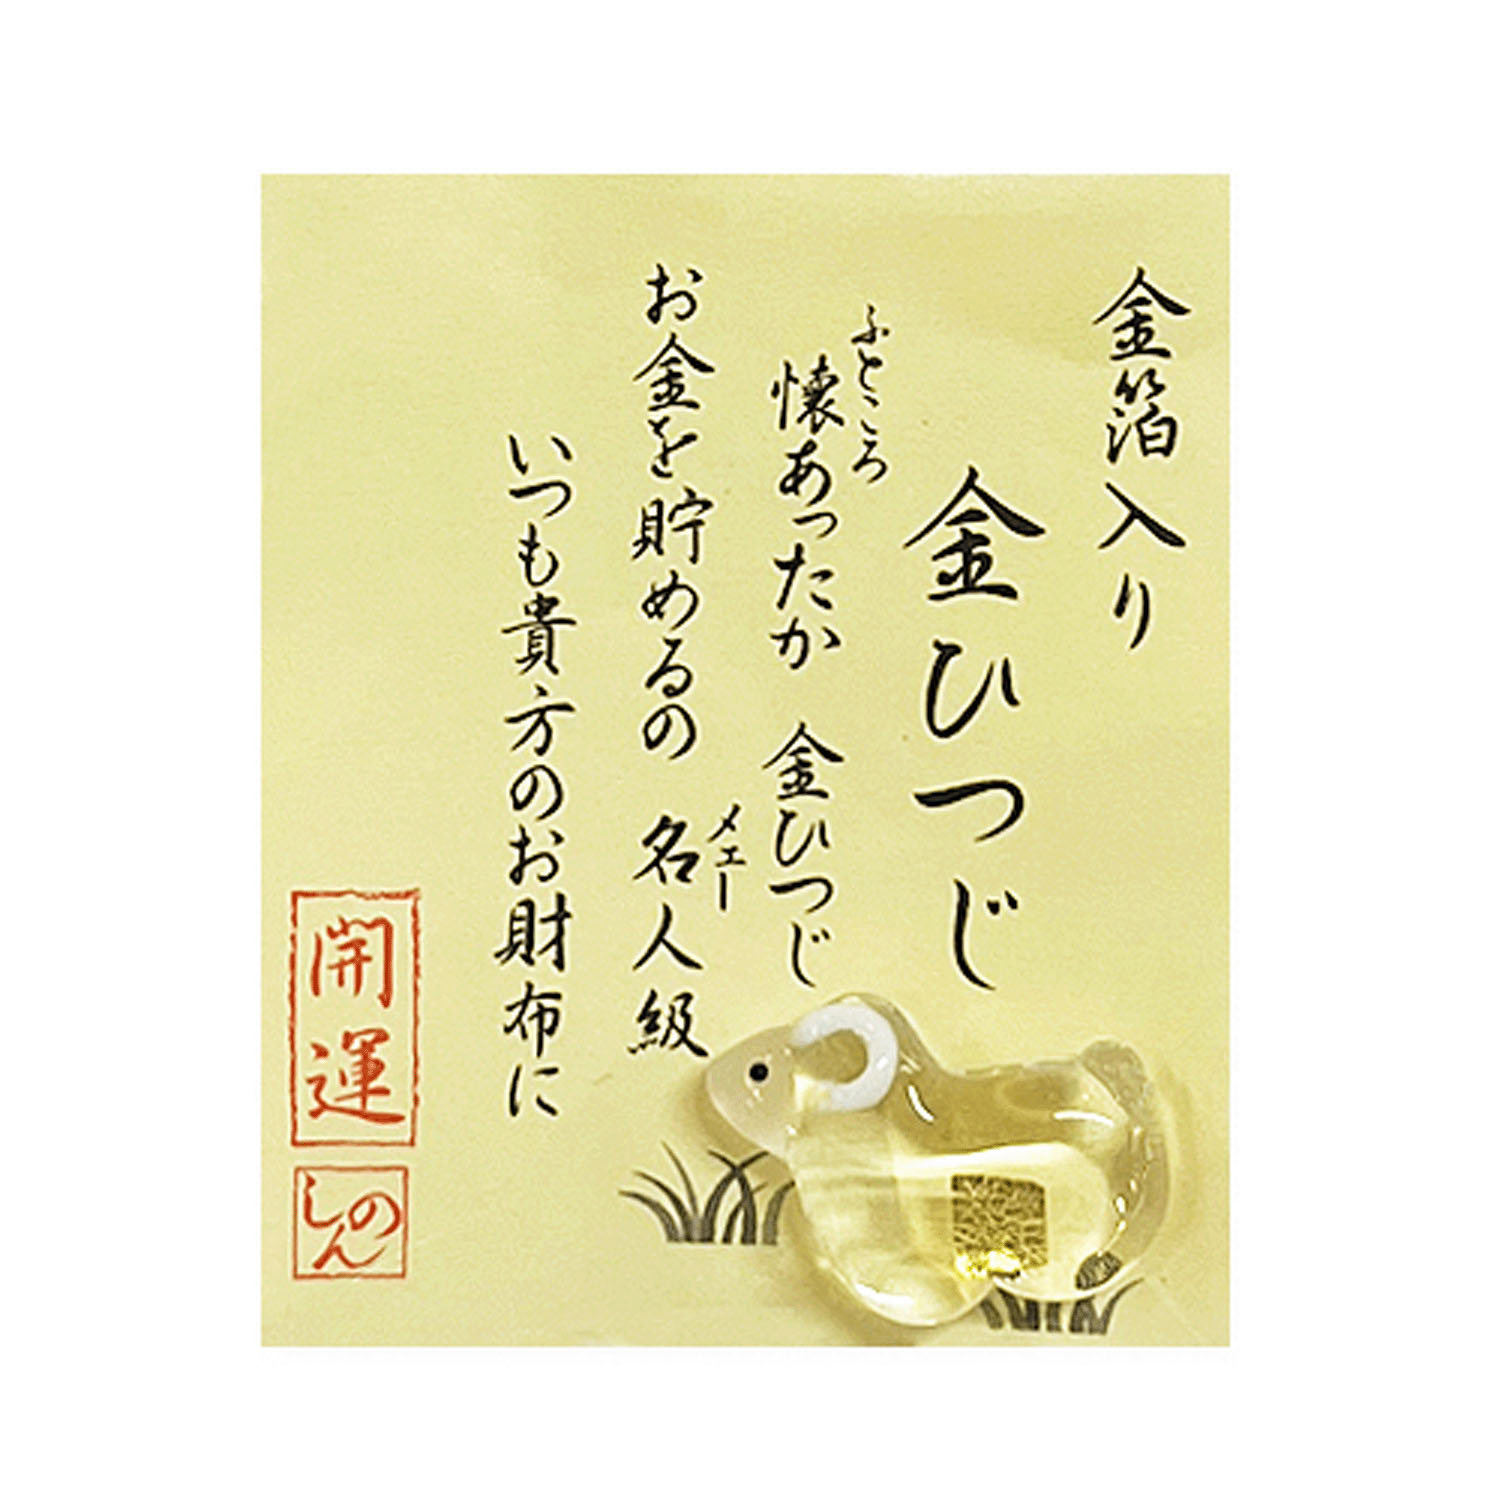 金箔入り
金ひつじ
ふところ
懐あったか 金ひつじ
メェー
お金を貯めるの 名人級
いつも貴方のお財布に
開運
のしん